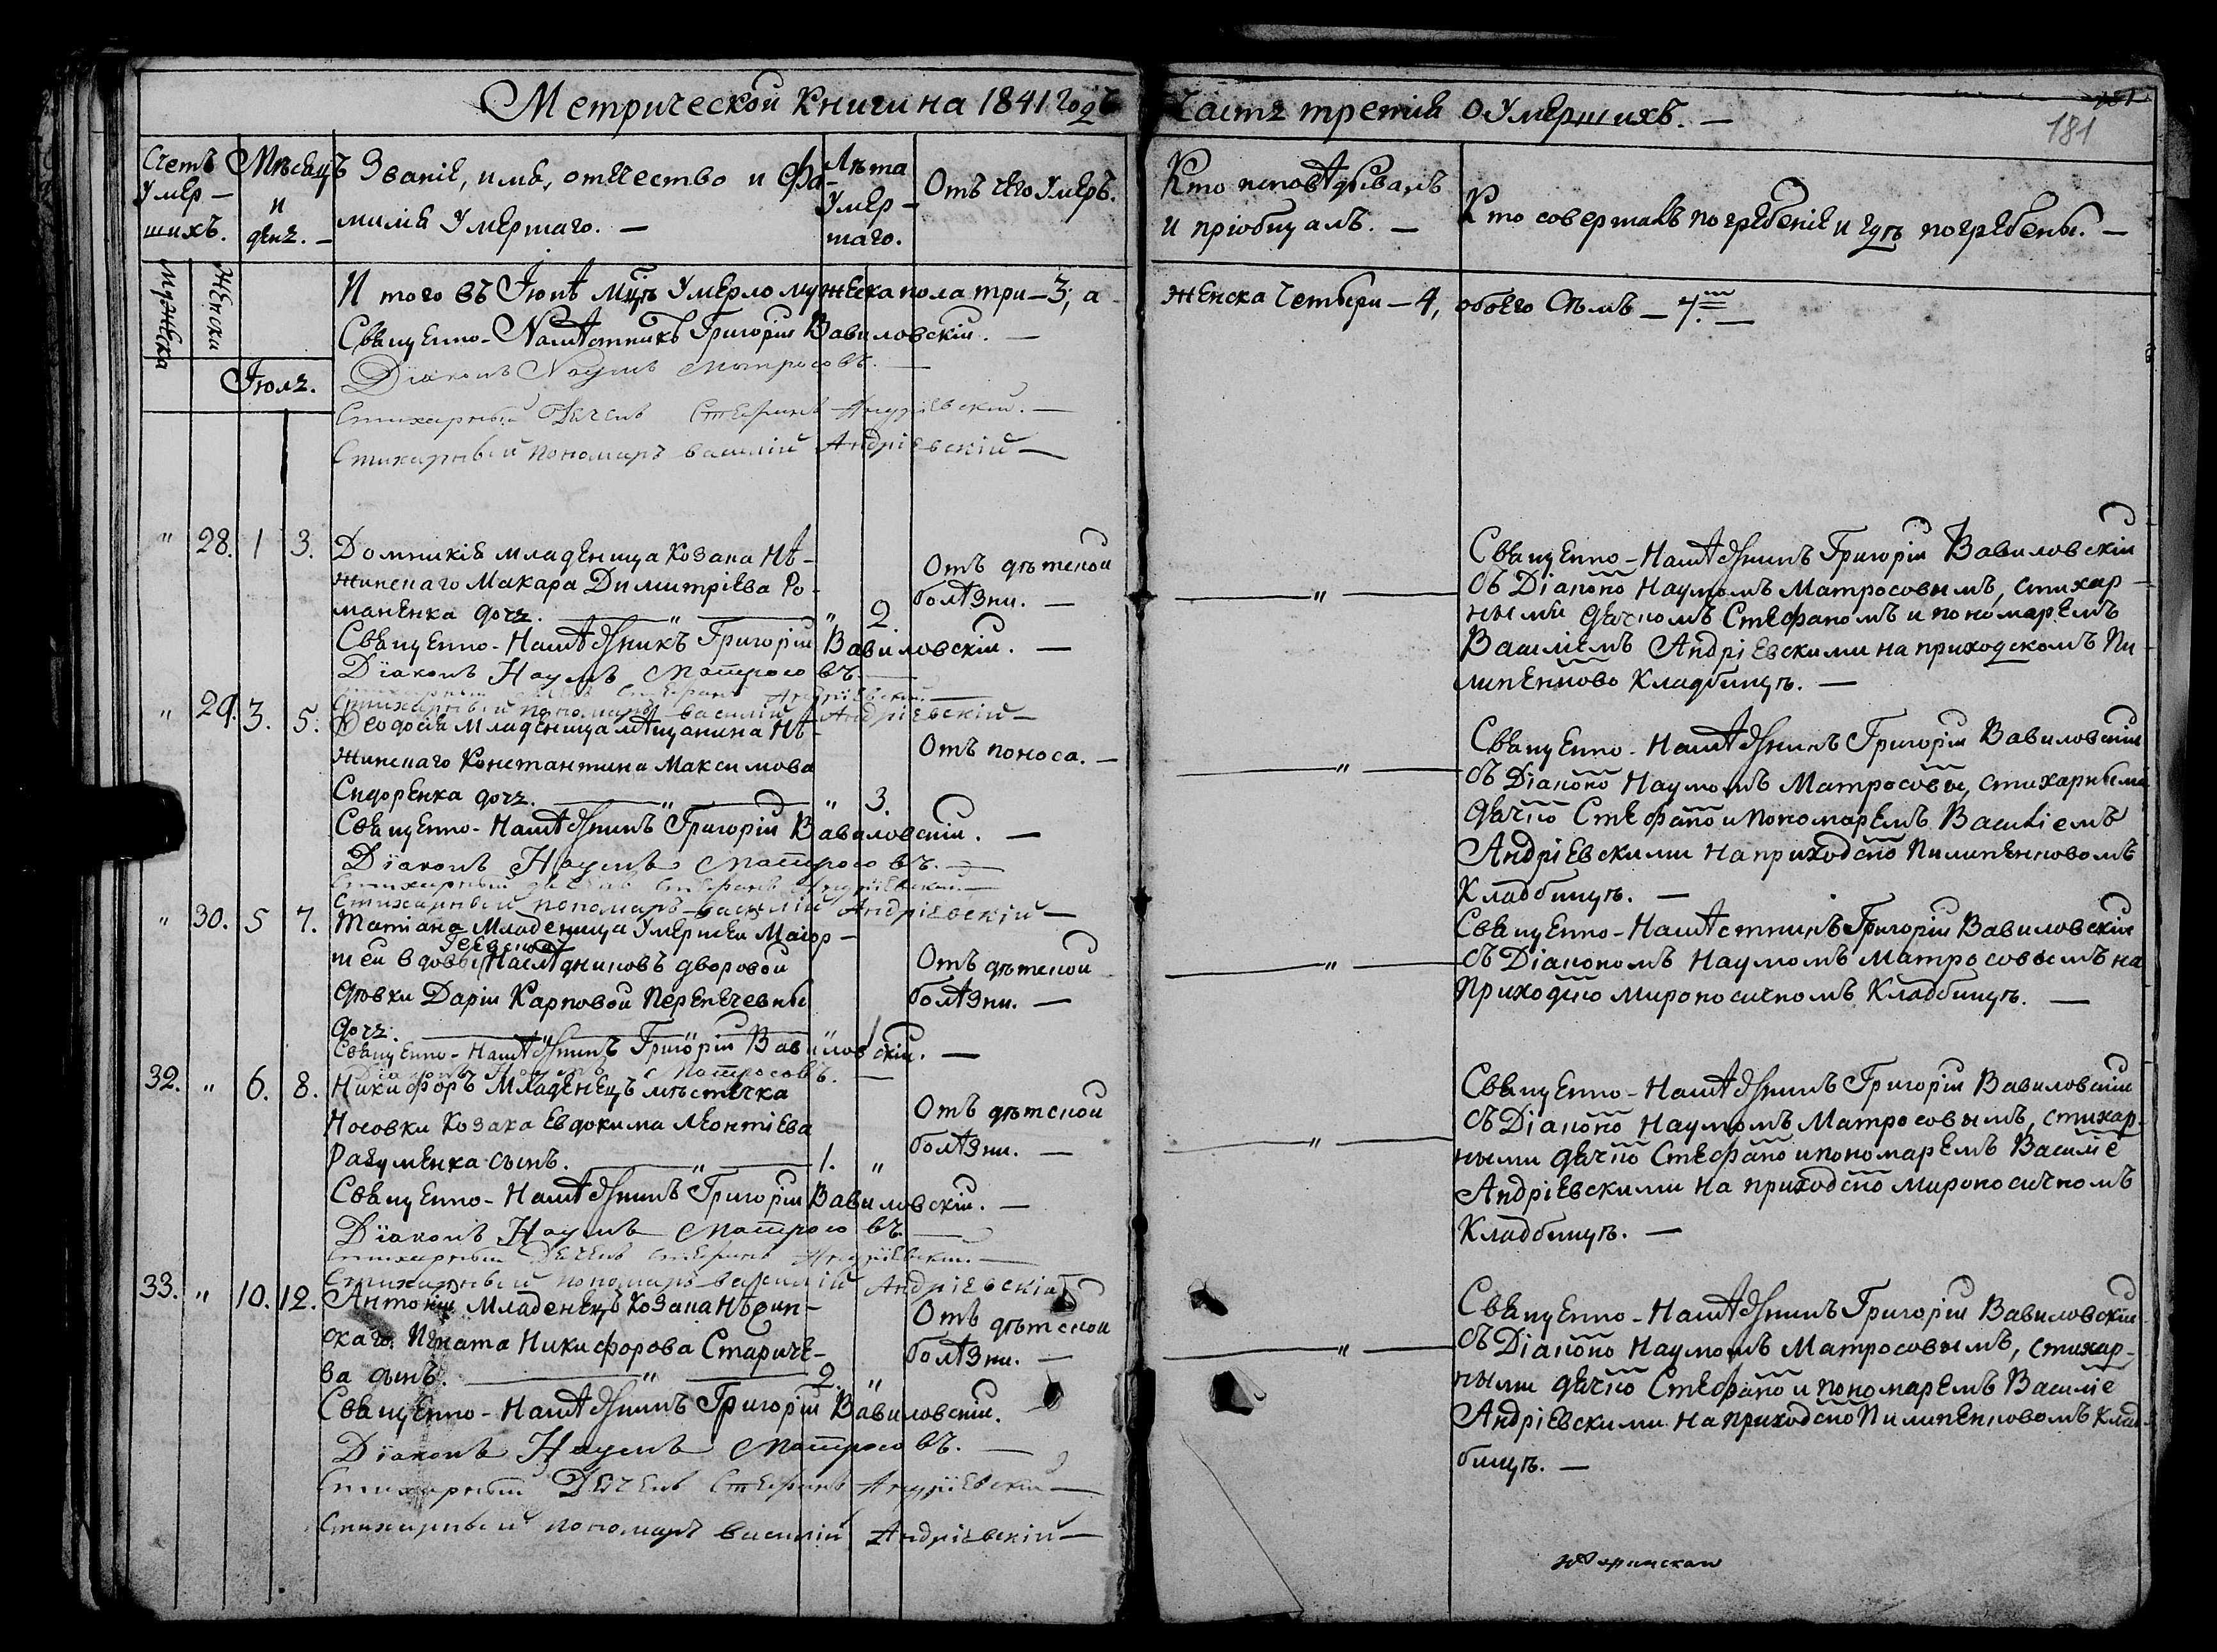 Метрической книги на 1841 годъ
Часть третія о Умершихъ. —
181
Счетъ Умер-шихъ.
Мѣсяцъ и день. —
Званіе, имя, отчество и фа-
милія Умершаго. —
Лѣта Умер-шаго.
Отъ чего Умеръ.
Кто исповѣдывалъ
и пріобщалъ. —
Кто совершалъ погребеніе и гдѣ погребены. —
Мужеска
Женски
Итого въ Іюнѣ мцѣ Умерло мужеска пола три — 3, а
женска четыри — 4, обоего сѣмъ — 7. —
Священно-Намѣстникъ Григорій Вавиловскій. —
Діаконъ Наумъ Матросовъ. —
Стихарный Дячекъ Стефанъ Андріевскій. —
Стихарный пономарь Василій Андріевскій —
Іюль.
" 28. 1 3. Домникія младеница козака Нѣ-
жинскаго Макара Димитріева Ро-
маненка дочь. — " — " 2.
Отъ дѣтской
болѣзни. —
— " —
Священно-Намѣстникъ Григорій Вавиловскій
съ Діаконо Наумомъ Матросовымъ, стихар-
ными дячкомъ Стефаномъ и пономаремъ
Василіемъ Андріевскими на приходскомъ Пи-
липенково Кладбищѣ. —
Священно-Намѣстникъ Григорій Вавиловскій. —
Діаконъ Наумъ Матросовъ —
Стихарный Дячекъ Стефанъ Андріевскій. —
Стихарный пономарь Василій Андріевскій —
" 29. 3. 5. Феодосія младеница мѣщанина Нѣ-
жинскаго Константина Максимова
Сидоренка дочь. — " — " 3.
Отъ поноса. —
— " —
Священно-Намѣстникъ Григорій Вавиловскій
съ Діаконо Наумомъ Матросовы, стихарными
дячко Стефано и пономаремъ Василіемъ
Андріевскими на приходско Пилипенковомъ
Кладбищѣ. —
Священно-Намѣстникъ Григорій Вавиловскій. —
Діаконъ Наумъ Матросовъ. —
Стихарный дячекъ Стефанъ Андріевскій. —
Стихарный пономарь Василій Андріевскій —
" 30. 5 7. Татіана Младеница Умершей Маіор-
шей вдовы Наслѣдниковъ дворовой
дѣвки Даріи Карповой Перепечевны
дочь. — " — " 1
Отъ дѣтской
болѣзни. —
— " —
Священно-Намѣстникъ Григорій Вавиловскій
съ Діакономъ Наумомъ Матросовымъ на
Приходско Мироносичномъ Кладбищѣ. —
Священно-Намѣстникъ Григорій Вавиловскій. —
Діаконъ Наумъ Матросовъ. —
32. " 6. 8. Никифоръ Младенецъ мѣстечка
Носовки Козака Евдокима Леонтіева
Разуменка сынъ. — " — 1. "
Отъ дѣтской
болѣзни. —
— " —
Священно-Намѣстникъ Григорій Вавиловскій
съ Діаконо Наумомъ Матросовымъ, стихар-
ными дячко Стефано и пономаремъ Василіе
Андріевскими на приходско Мироносичномъ
Кладбищѣ. —
Священно-Намѣстникъ Григорій Вавиловскій. —
Діаконъ Наумъ Матросовъ. —
Стихарный Дячекъ Стефанъ Андріевскій. —
Стихарный пономарь Василій Андріевскій
33. " 10. 12. Антоній Младенецъ Козака Нѣжин-
скаго Игната Никифорова Стариче-
ва сынъ. — " — 2. "
Отъ дѣтской
болѣзни. —
— " —
Священно-Намѣстникъ Григорій Вавиловскій
съ Діаконо Наумомъ Матросовымъ, стихар-
ными дячко Стефано и пономаремъ Василіе
Андріевскими на приходско Пилипенковомъ Клад-
бищѣ. —
Священно-Намѣстникъ Григорій Вавиловскій.
Діаконъ Наумъ Матросовъ. —
Стихарный Дячекъ Стефанъ Андріевскій —
Стихарный пономарь Василій Андріевскій —